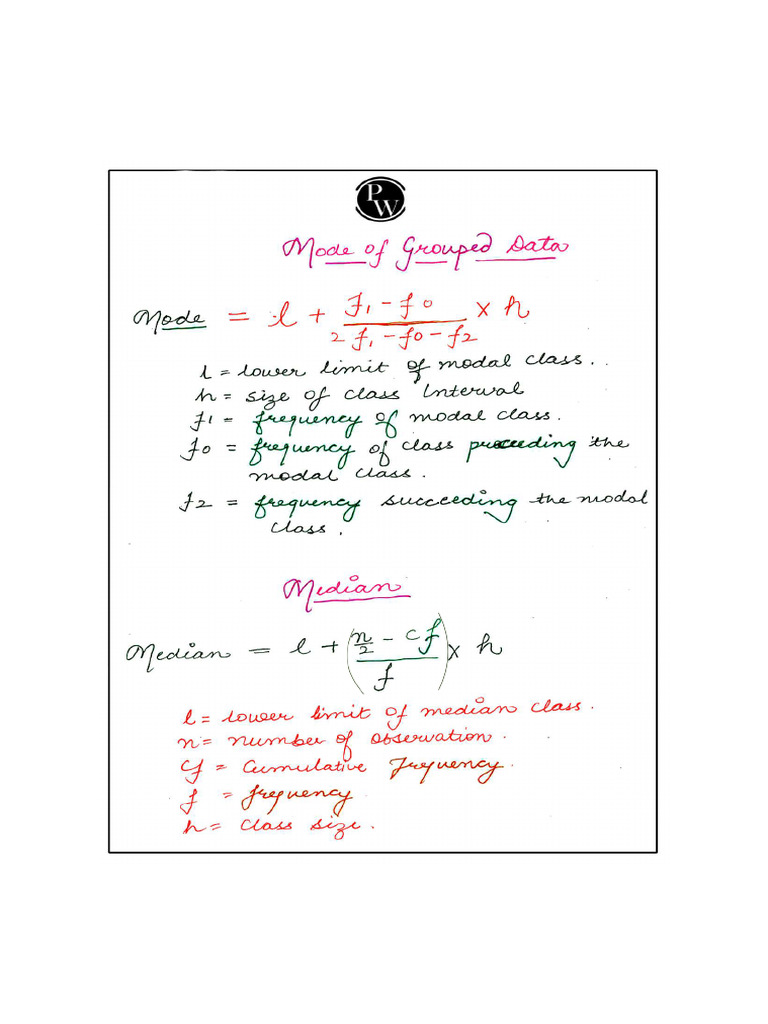 PW
Mode of Grouped Data
Mode = l + (f1 - f0) / (2f1 - f0 - f2) × h
l = lower limit of modal class.
h = size of class Interval
f1 = frequency of modal class.
f0 = frequency of class preceeding the
modal class.
f2 = frequency succeeding the modal
class.
Median
Median = l + ((n/2 - cf) / f) × h
l = lower limit of median class.
n = number of observation.
Cf = Cumulative Frequency
f = frequency
h = class size.